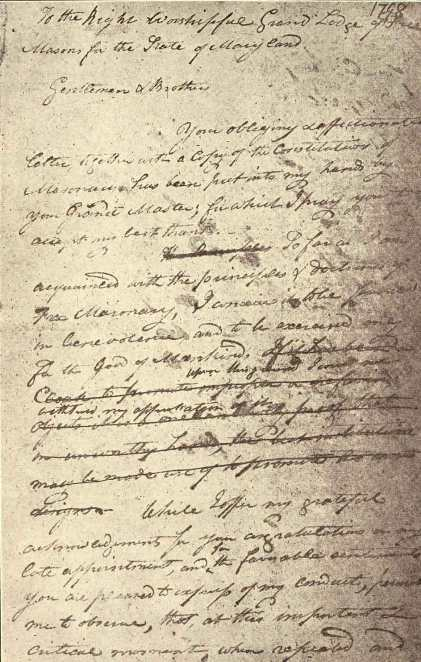 1798
To the Right Worshipful Grand Lodge of Free
Masons for the State of Maryland.
Gentlemen & Brothers
Your obliging & affectionate
letter together with a Copy of the Constitutions of
Masonry has been put into my hands by
your Grand Master; for which I pray you to
accept my best thanks.
So far as I am
acquainted with the principles & doctrines of
Free Masonry, I conceive it to be founded
in benevolence and to be exercised only
for the good of Mankind. If it has been
upon this ground I
Cloak to promote improper or
withdraw my approbation of it
in unworthy hands, the best institutions
may be made use of to promote the worst
designs
While I offer my grateful
acknowledgements for your congratulations on my
late appointment and for the favorable sentiments
you are pleased to express of my conduct, permit
me to observe, that at this important &
critical moment, when repeated and